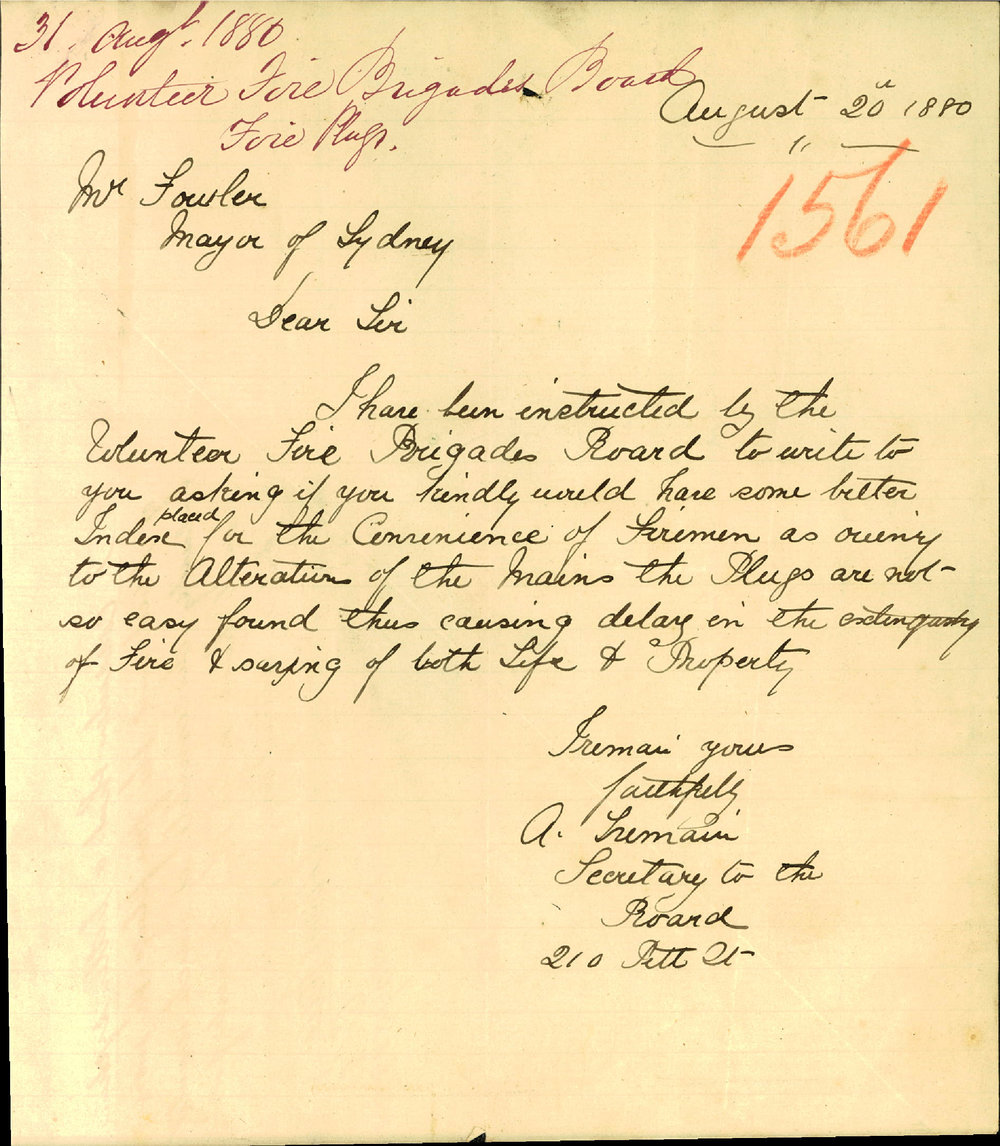 31. Augt. 1880.
Volunteer Fire Brigades Board
Fire Plugs.
August 20th 1880
1561
Mr Fowler
Mayor of Sydney
Dear Sir
I have been instructed by the
Volunteer Fire Brigades Board to write to
you asking if you kindly would have some better
Index placed for the Convenience of Firemen as owing
to the Alterations of the Mains the Plugs are not
so easy found thus causing delay in the
of Fire & saving of both Life & Property
I remain yours
faithfully
A. Tremain
Secretary to the
Board
210 Pitt St